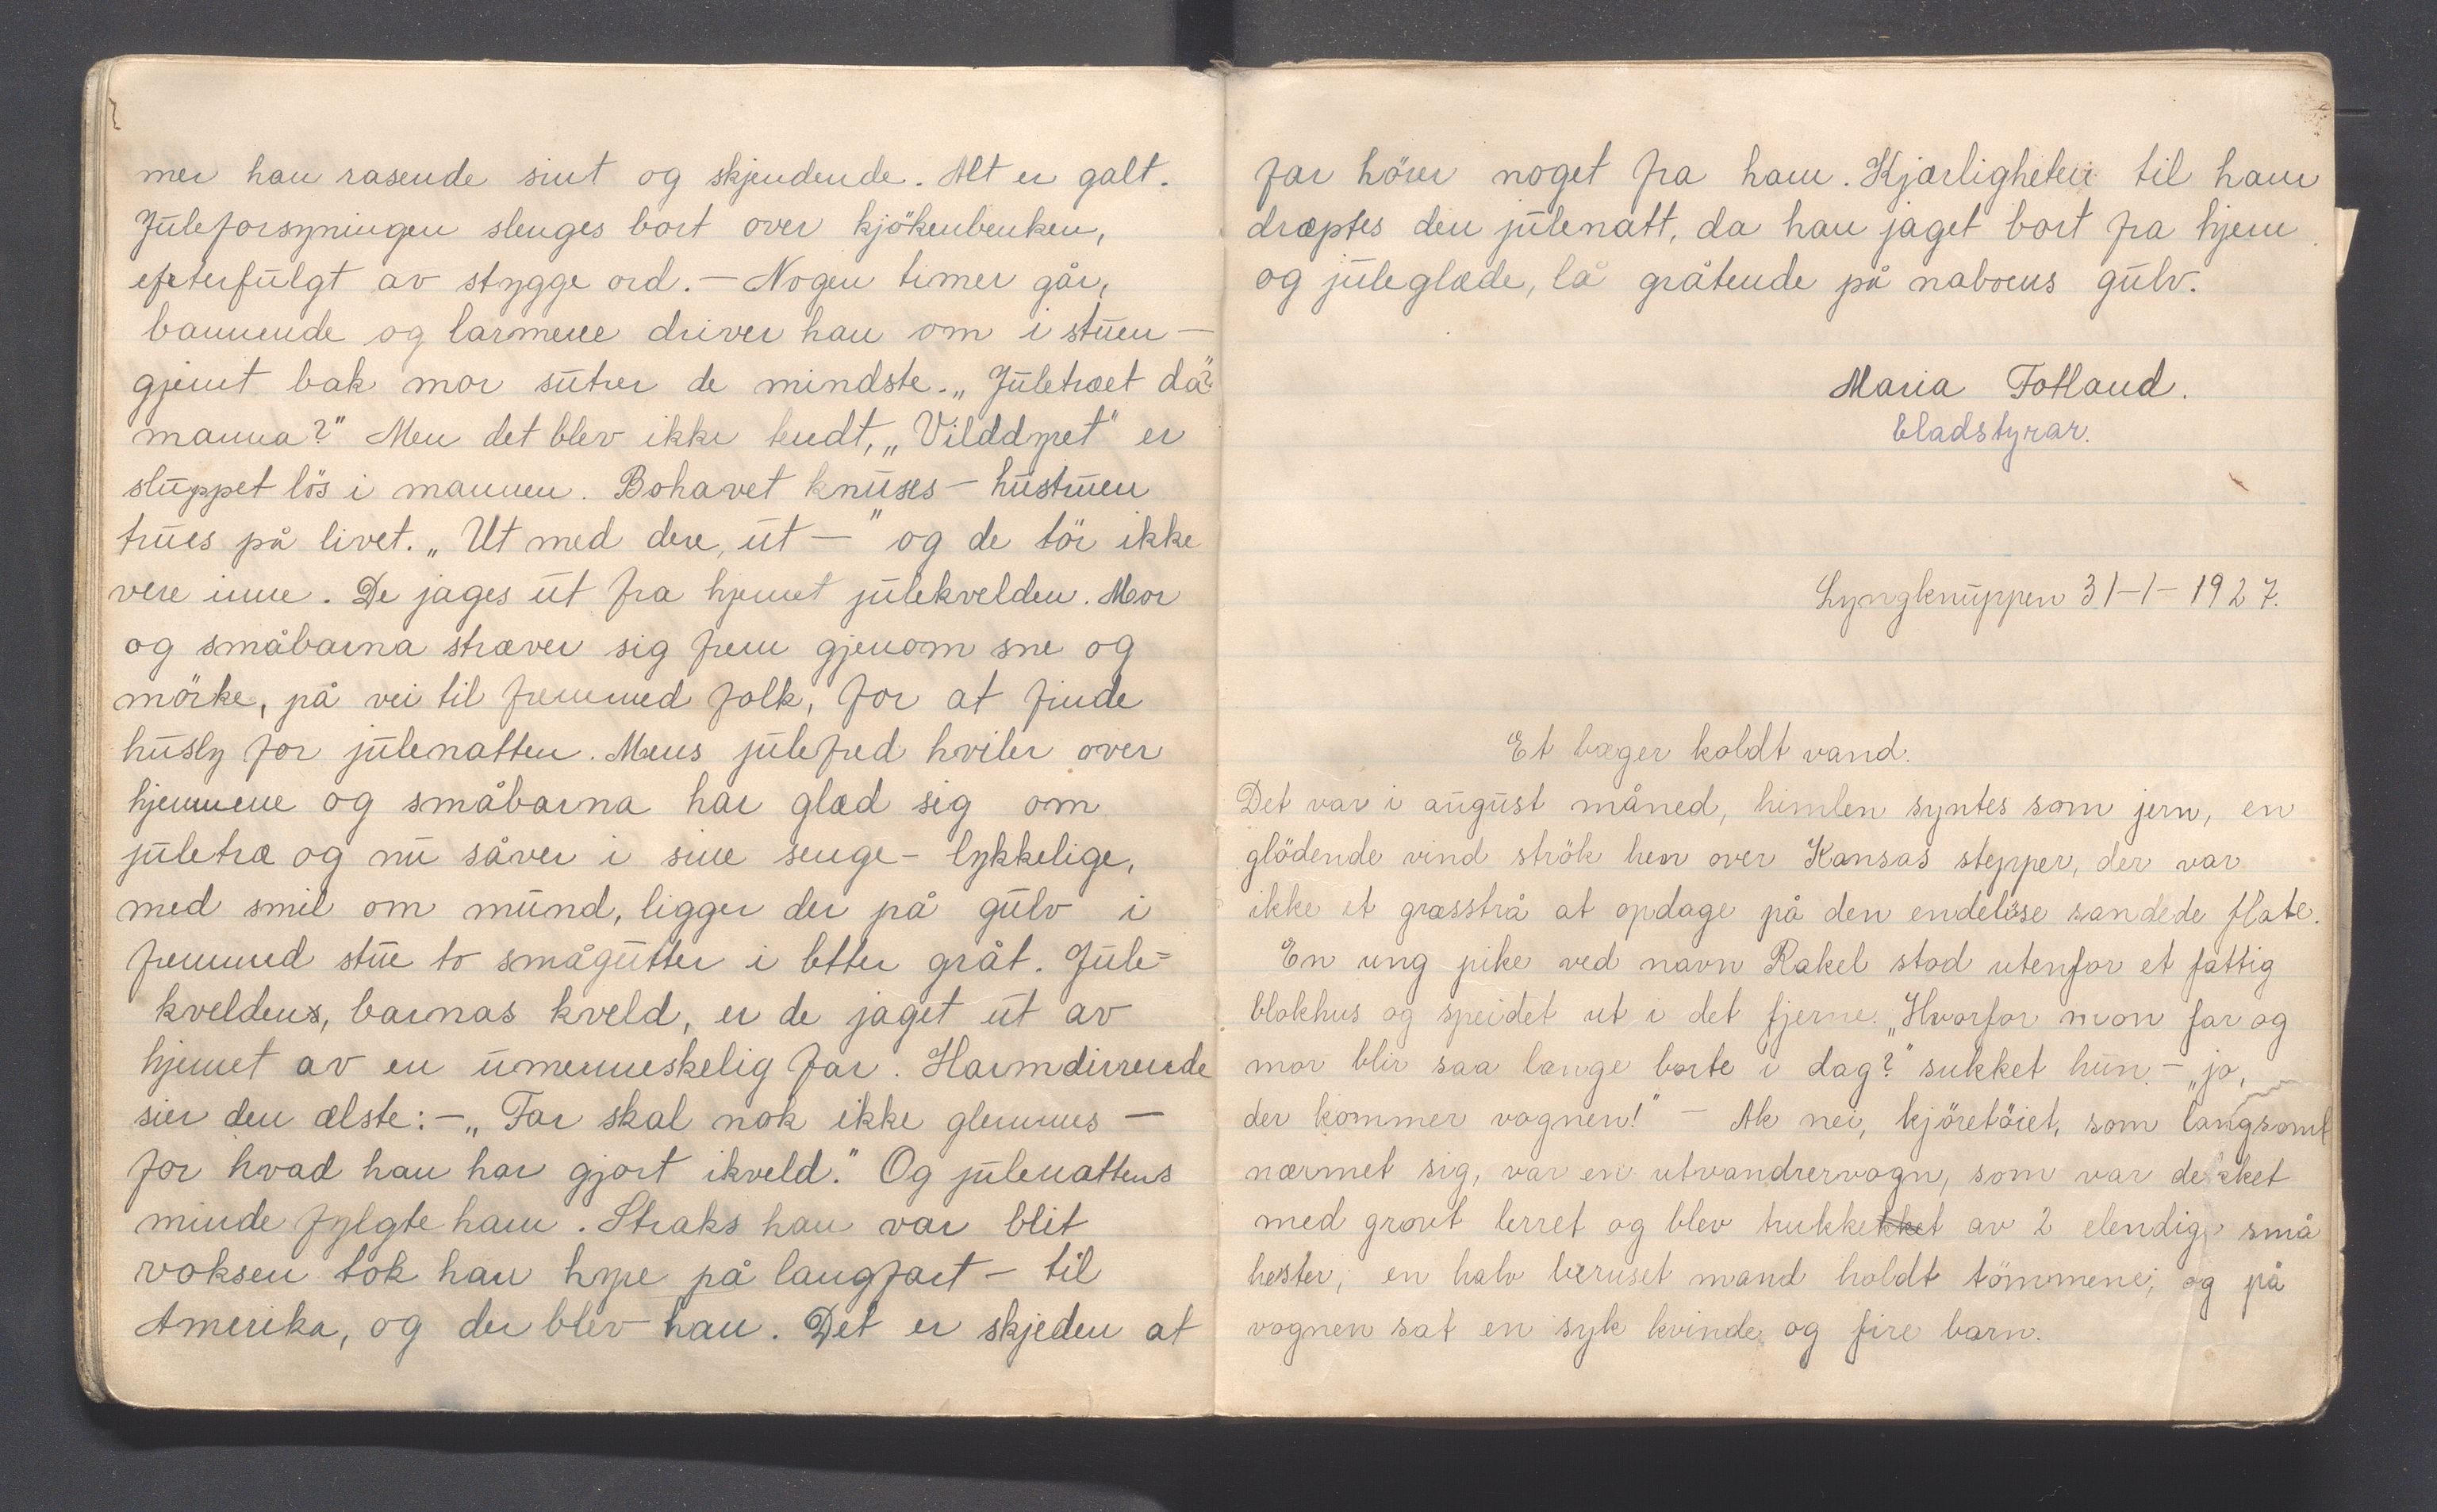 mer han rasende sint og skjendende. Alt er galt.
Juleforsyningen slenges bort over kjökenbenken,
efterfulgt av stygge ord. — Nogen timer går,
bannende og larmene driver han om i stuen —
gjemt bak mor sutrer de mindste. „Juletræet da?
mamma?" Men det blev ikke tendt, „Vilddyret" er
sluppet lös i mannen. Bohavet knuses — hustruen
trues på livet. „Ut med dere, ut —" og de tör ikke
vere inne. De jages ut fra hjemet julekvelden. Mor
og småbarna stræver sig frem gjenom sne og
mörke, på vei til fremmed folk, for at finde
husly for julenatten. Mens julefred hviler over
hjemmene og småbarna har glæd sig om
juletræ og nu såver i sine senge — lykkelige,
med smil om mund, ligger der på gulv i
fremmed stue to smågutter i letter gråt. Jule=
kveldens, barnas kveld, er de jaget ut av
hjemet av en umenneskelig far. Harmdirrende
sier den ælste: — „Far skal nok ikke glemmes —
for hvad han har gjort ikveld." Og julenattens
minde fylgte ham. Straks han var blit
voksen tok han hyre på langfart — til
Amerika, og der blev han. Det er skjeden at
far hörer noget fra ham. Kjærligheten til ham
dræptes den julenatt, da han jaget bort fra hjem
og juleglæde, lå gråtende på naboens gulv.
Maria Fotland.
bladstyrar.
Lyngknuppen 31-1-1927.
Et bæger koldt vand.
Det var i august måned, himlen syntes som jern, en
glödende vind strök hen over Kansas stepper, der var
ikke et græsstrå at opdage på den endelöse sandede flate.
En ung pike ved navn Rakel stod utenfor et fattig
blokhus og speidet ut i det fjerne. „Hvorfor mon far og
mor blir saa lange borte i dag?" sukket hun — „jo,
der kommer vognen!" — Ak nei, kjöretöiet, som langsomt
nærmet sig, var en utvandrervogn, som var dekket
med grovt lerret og blev trukket av 2 elendige små
hester; en halv beruset mand holdt tömmene; og på
vognen sat en syk kvinde og fire barn.